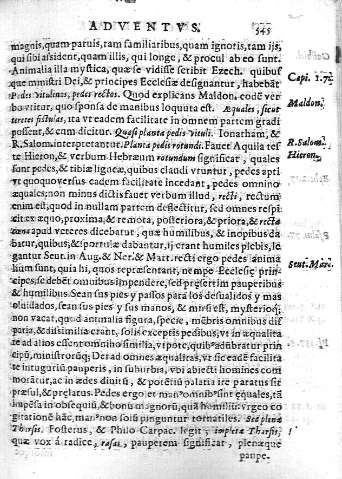 ADVENTVS. 545
magnis, quam paruis, tam familiaribus, quam ignotis, tam ijs,
qui sibi assident, quam illis, qui longe, & procul ab eo sunt.
Animalia illa mystica, quæ se vidisse scribit Ezech. quibus
que ministri Dei, & principes Ecclesiæ designantur, habebāt
Pedes vitulinos, pedes rectos. Quod explicans Maldon. codē
bo vtitur, quo sponsa de manibus loquuta est. Æquales, sicut
teretes fistulas, ita vt eadem facilitate in omnem partem gradi
possent, & cum dicitur. Quasi planta pedis vituli. Ionatham, &
R. Salom. interpretantur. Planta pedis rotundi. Fauet Aquila tes
te Hieron, & verbum Hebræum rotundum significat, quales
sunt pedes, & tibiæ ligneæ, quibus claudi vtuntur, pedes apti
vt quoquo versus eadem facilitate incedant, pedes omnino
æquales; non minus dictis fauet verbum illud, recti, rectum
enim est, quod in nullam partem deflectitur, sed omnes respi
cit ex æquo, proxima, & remota, posteriora, & priora, & recta
apud veteres dicebatur, quæ humilibus, & inopibus da
batur, quibus, & sportulæ dabantur, ij erant humiles plebis, le
gantur Seut. in Aug. & Ner. & Mart. recti ergo pedes anima
lium sunt, quia hi, quos repræsentant, nempe Ecclesiæ prin-
cipes, se debēt omnibus impendere, sed præsertim pauperibus
& humilibus. Sean sus pies y passos para los desualidos y mas
oluidados, sean sus pies y sus manos, & mirū est, mysterioq;
non vacat, quod animalia figura, specie, mēbris omnibus dis
paria, & dissimilia erant, solis exceptis pedibus, vt in æqualita
te ad alios essent omnino similia, vtpote, quib° adūbratur prin
cipū, ministrorūq; Dei ad omnes æqualitas, vt sic eadē facilita
te in tuguriū pauperis, in suburbia, vbi abiecti homines com
morātur, ac in ædes diuitū, & potētiū palatia ire paratus sit
præsul, & prælatus. Pedes ergo et man° omnib° sunt equales, tā
impēsa in obsequiū, & bona magnorū, quā humiliū: vrgeo co
gitationē hāc, man° non solū pinguntur tornatiles. Sed plenæ
Tharsis. Fosterus, & Philo Carpac. legit, impletæ Tharsis,
quæ vox à radice, rasas, pauperem significat, plenæque
paupe.
Capi. 1. 7.
Maldon.
R. Salom.
Hieron.
Seut. Mart.